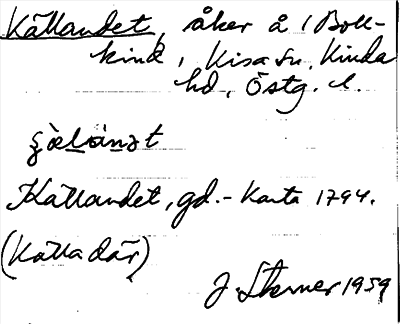 Källandet, åker å Boll-
kind, Kisa sn, Kinda
hd, Östg. l.
Källandet, gd. - Karta 1794.
(Källa där)
J. Sterner 1959